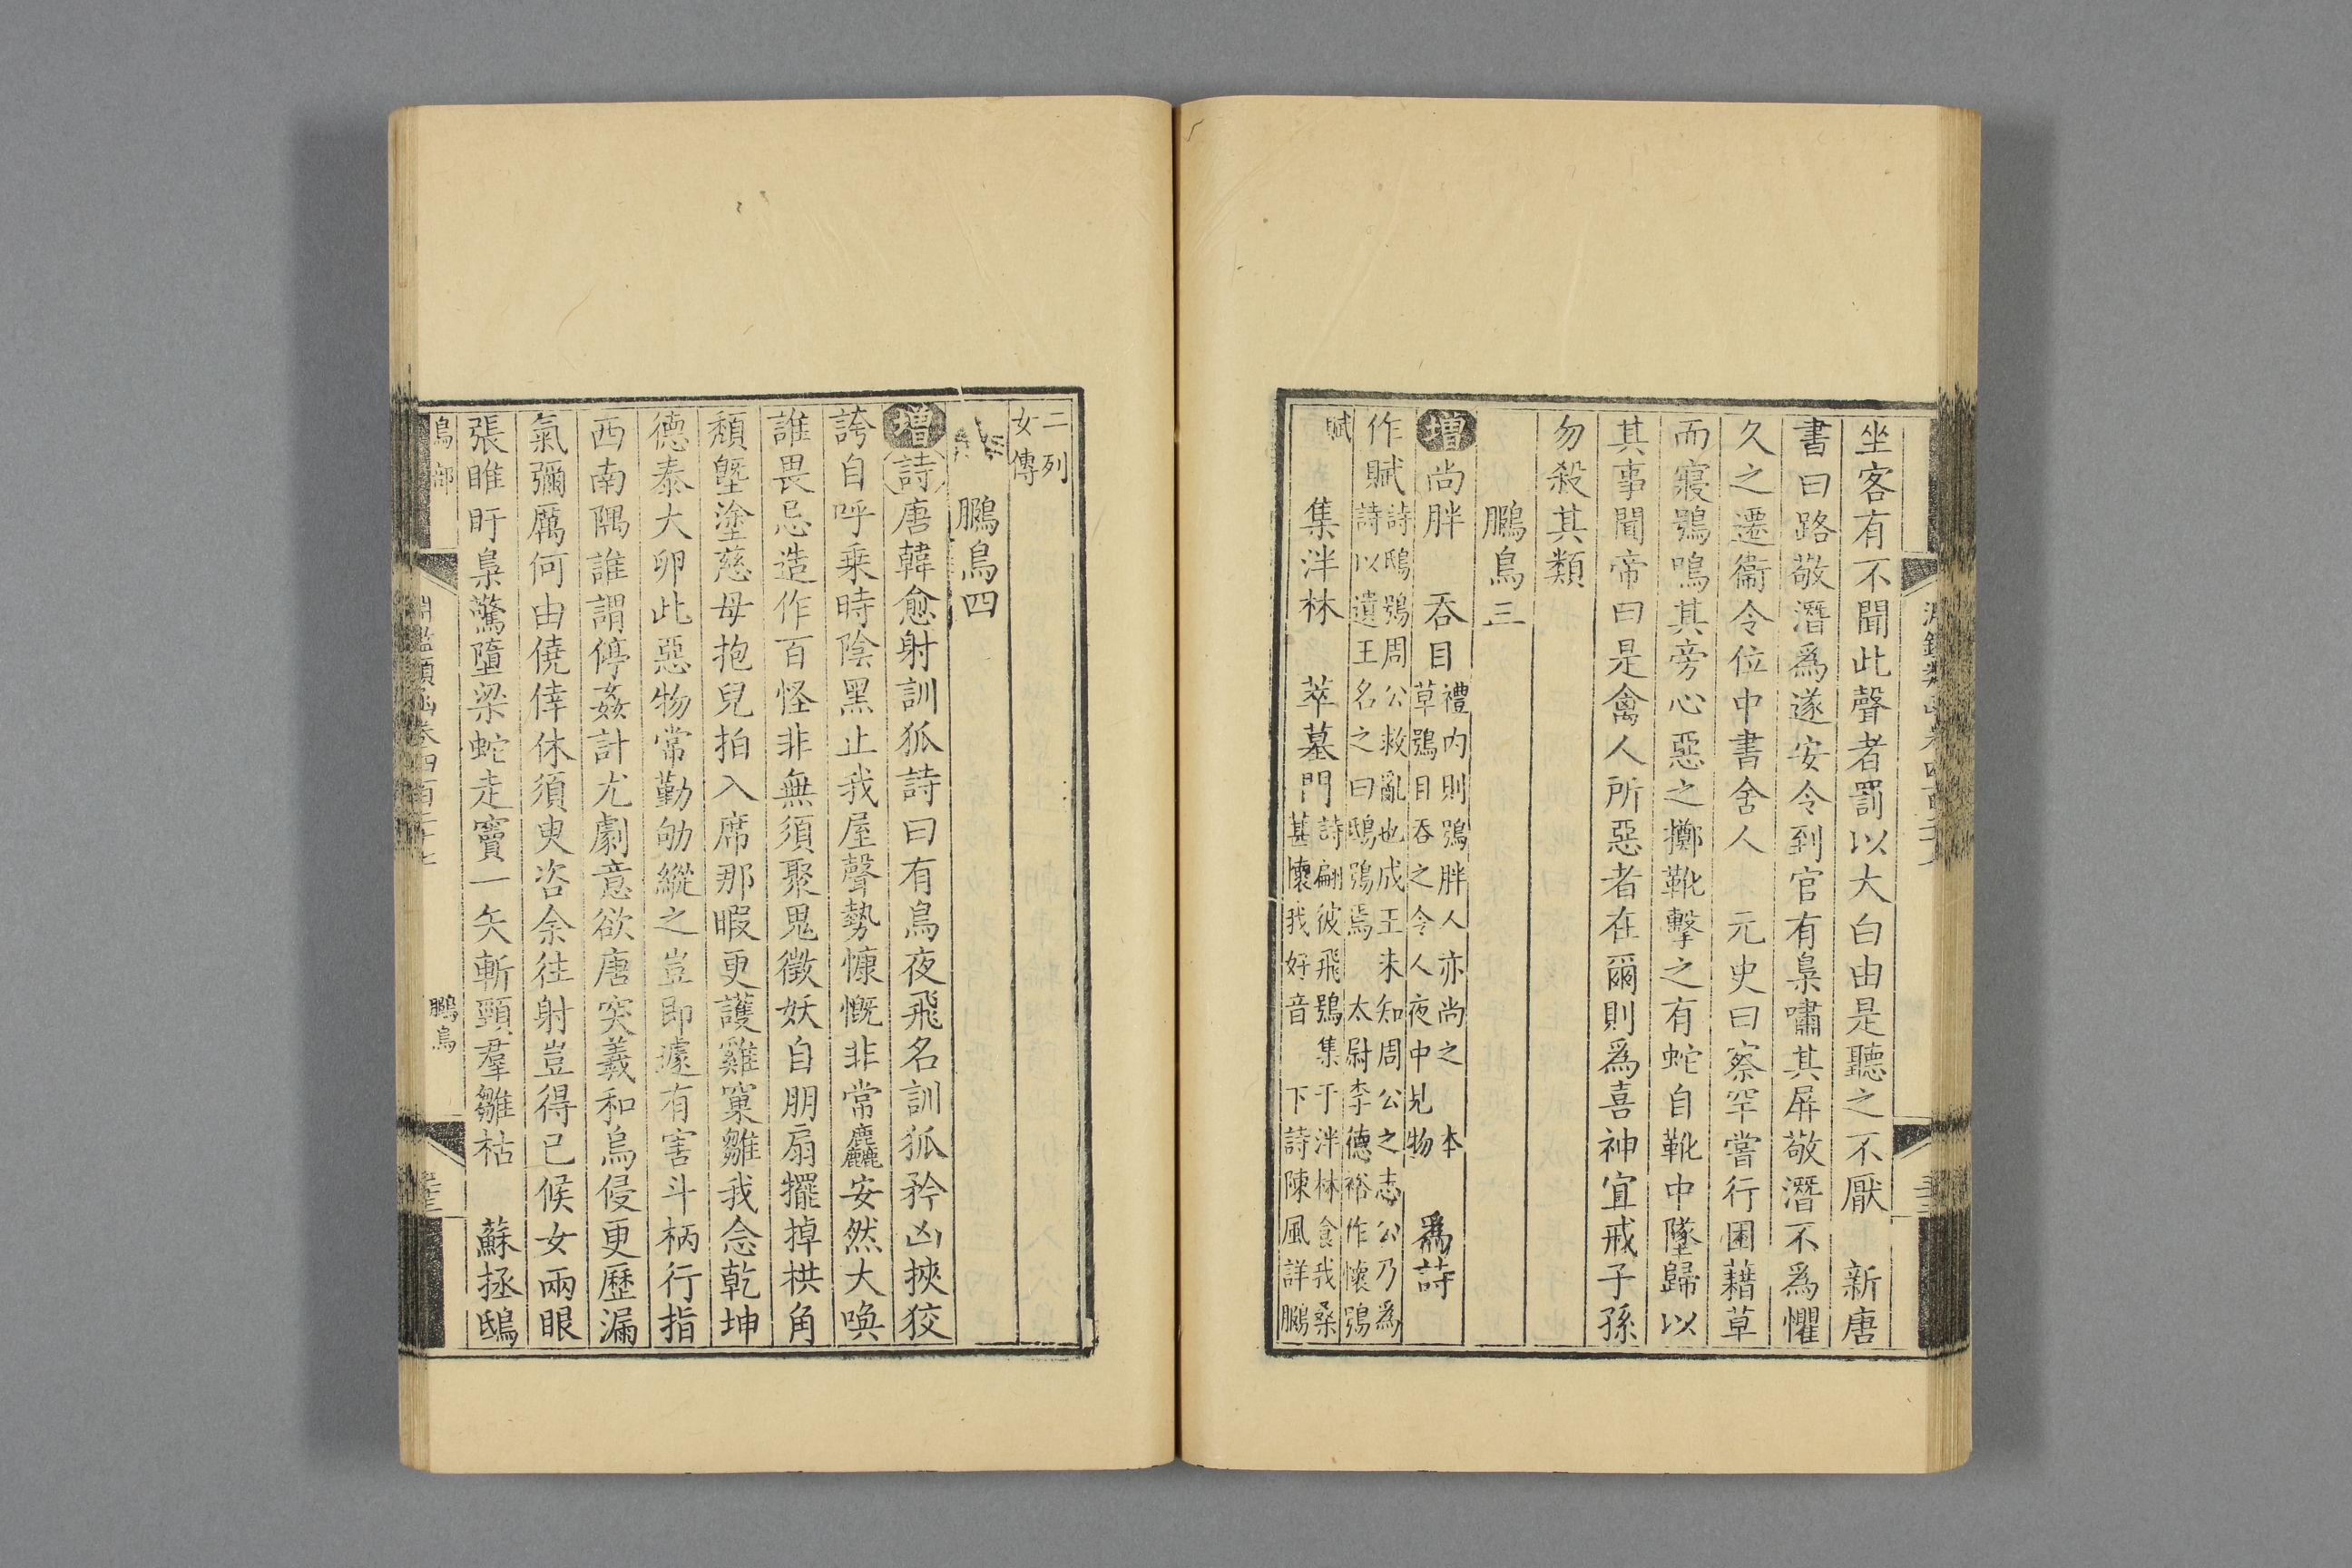 坐客有不聞此聲者罰以大白由是聽之不厭　新唐
書曰路敬潛爲遂安令到官有梟嘯其屏敬潛不爲懼
久之遷衞令位中書舍人　元史曰察罕嘗行困藉草
而寢鴞鳴其旁心惡之擲靴擊之有蛇自靴中墜歸以
其事聞帝曰是禽人所惡者在爾則爲喜神宜戒子孫
勿殺其類
鵩鳥三
增尚胖　吞目
禮內則鴞胖人亦尚之　本
草鴞目吞之令人夜中見物
爲詩
作賦
詩鴟鴞周公救亂也成王未知周公之志公乃爲
詩以遺王名之曰鴟鴞焉　太尉李德裕作懷鴞
賦
集泮林　萃墓門
詩翩彼飛鴞集于泮林食我桑
葚懷我好音　下詩陳風詳鵩
二列
女傳
鵩鳥四
增詩唐韓愈射訓狐詩曰有鳥夜飛名訓狐矜凶挾狡
誇自呼乘時陰黑止我屋聲勢慷慨非常麤安然大喚
誰畏忌造作百怪非無須聚鬼徵妖自朋扇擺掉栱角
頹墍塗慈母抱兒拍入席那暇更護雞窠雛我念乾坤
德泰大卵此惡物常勤劬縱之豈即遽有害斗柄行指
西南隅誰謂停姦計尤劇意欲唐突羲和烏侵更歷漏
氣彌厲何由僥倖休須臾咨余往射豈得已候女兩眼
張睢盱梟驚墮梁蛇走竇一矢斬頸羣雛枯　蘇拯鴟
鳥部
鵩鳥